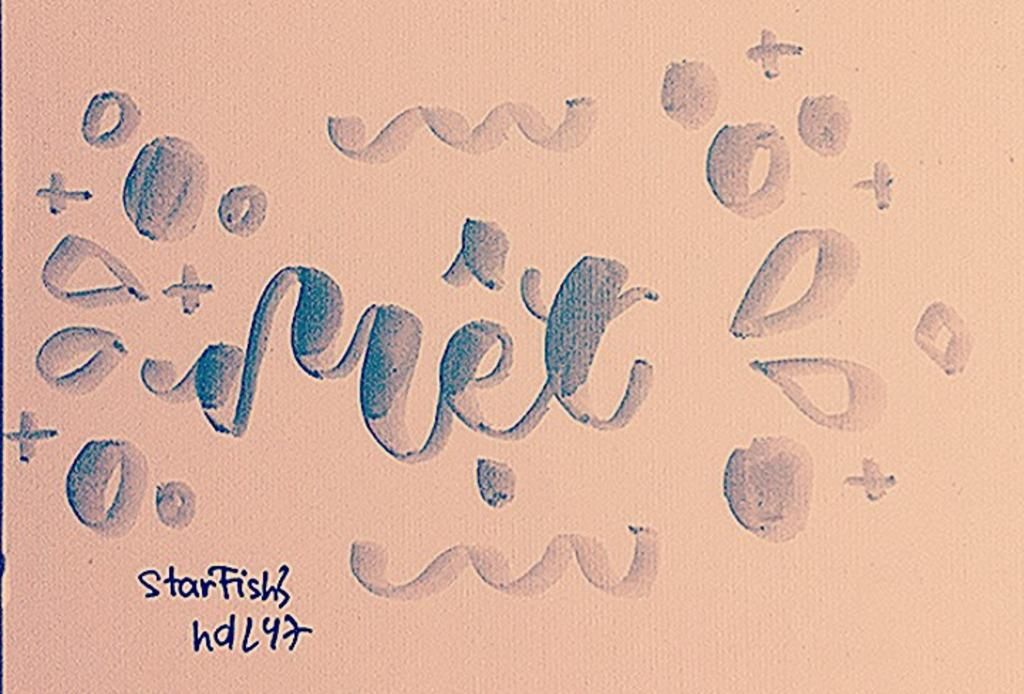 Mệt
StarFish3
hdL47